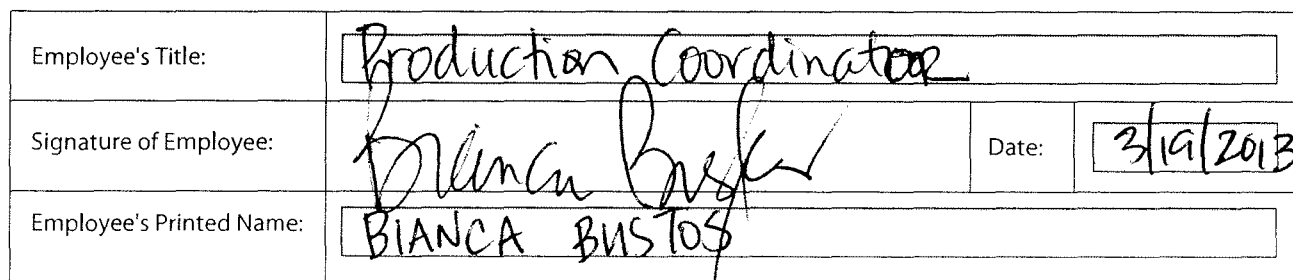 Employee's Title: Production Coordinator
Signature of Employee: Bianca Bustos Date: 3/19/2013
Employee's Printed Name: BIANCA BUSTOS